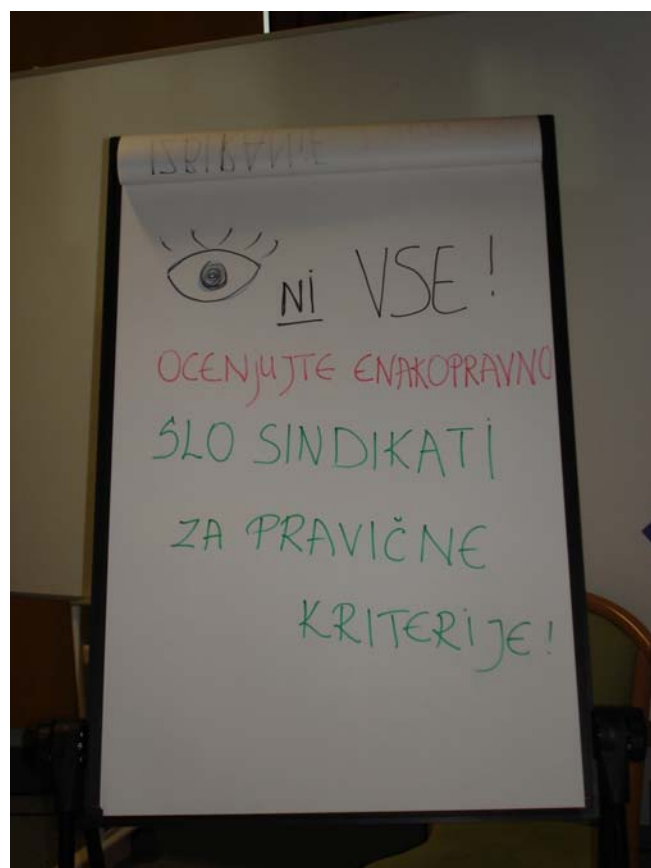 NI VSE!
OCENJUJTE ENAKOPRAVNO
SLO SINDIKATI
ZA PRAVIČNE
KRITERIJE!